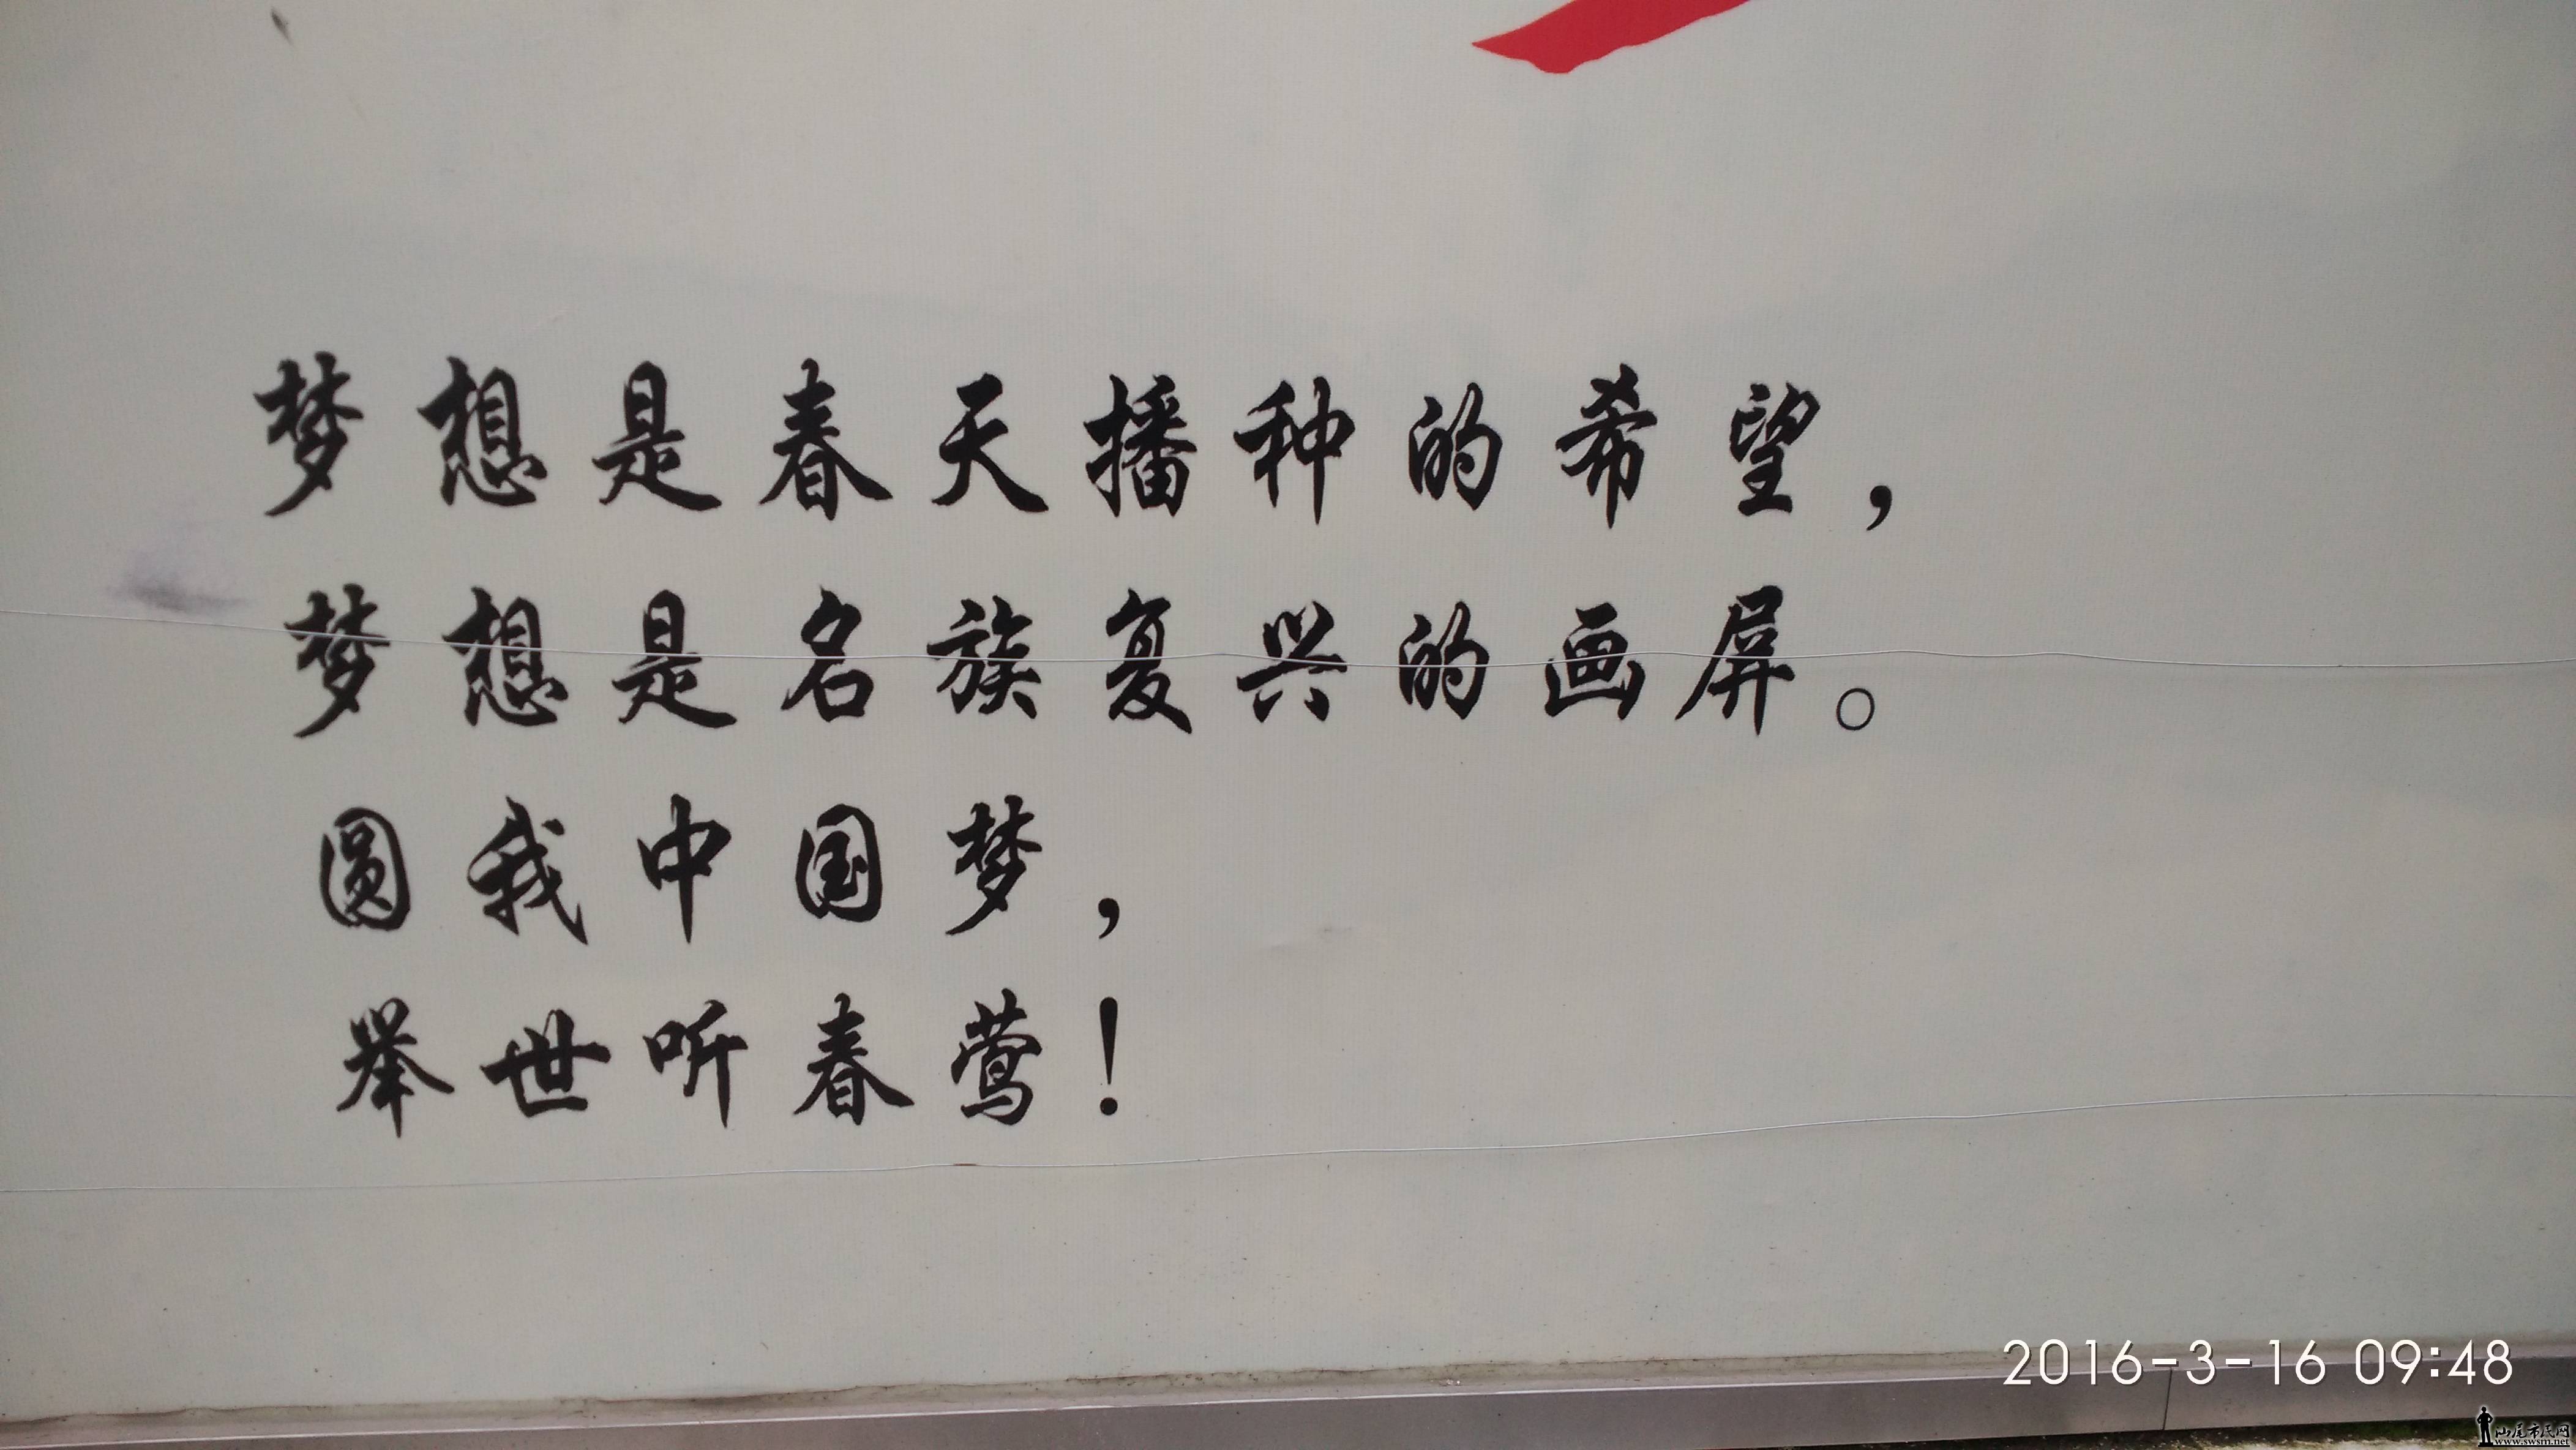 梦想是春天播种的希望，
梦想是名族复兴的画屏。
圆我中国梦，
举世听春莺！
2016-3-16 09:48
汕尾市民网
www.swsm.net